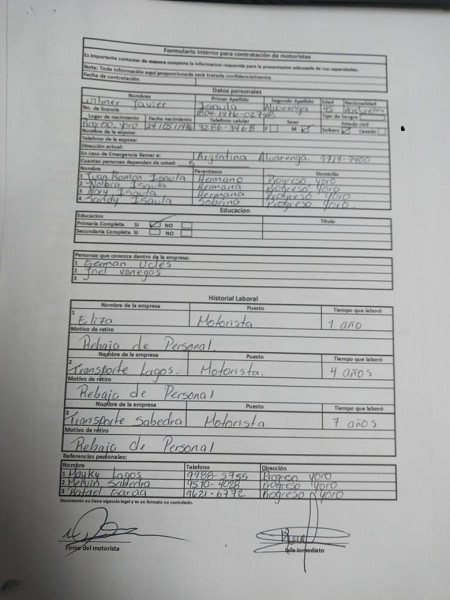 Formulario interno para contratación de motoristas
Es importante contestar de manera completa la informacion requerida para la presentacion adecuada de sus capacidades.
Nota: Toda información aquí proporcionada será tratada confidencialmente.
Fecha de contratación
Datos personales
Nombres Primer Apellido Segundo Apellido Edad Nacionalidad
Wilmer Javier Isaula Alvarenga 45
No. de licencia Tipo de Sangre
Lugar de nacimiento Fecha nacimiento Telefono celular Sexo Estado civil
Yoro 3286-3468 F M Soltero Casado
Nombre de la esposa:
Telefono de la esposa:
Dirección actual:
En caso de Emergencia llamar a: Argentina Alvarenga 9719-7400
Cuantas personas dependen de usted:
Nombres Parentesco Domicilio
1 Juan Ramon Isaula Hermano Progreso Yoro
2 Isaula Hermana Progreso Yoro
3 Isaula Hermana Progreso Yoro
4 Sandy Isaula Sobrina Progreso Yoro.
Educacion
Educacion Titulo
Primaria Completa SI NO
Secundaria Completa SI NO
Personas que conozca dentro de la empresa:
1 German Ucles
2 Joel Vanegas
3
Historial Laboral
Nombre de la empresa Puesto Tiempo que laboró
1 Eliza Motorista 1 año
Motivo de retiro
Rebaja de Personal
Nombre de la empresa Puesto Tiempo que laboró
2 Transporte Lagos. Motorista. 4 años
Motivo de retiro
Rebaja de Personal
Nombre de la empresa Puesto Tiempo que laboró
3 Transporte Sabedra Motorista 7 años
Motivo de retiro
Rebaja de Personal
Referencias personales:
Nombre Telefono Dirección
1 Lagos 9988-5755 Progreso Yoro
2 Melvin Sabedra 9570-4028 Progreso Yoro
3 Rafael Garcia 9621-6772 Progreso Yoro
Documento no tiene vigencia legal y es un formato no controlado.
Firma del motorista Jefe inmediato